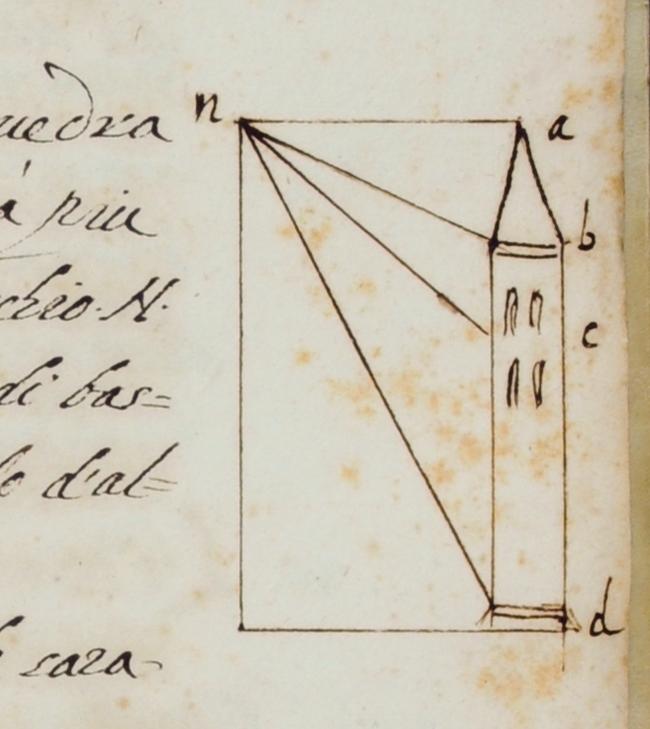 uedra
à piu
chio. N.
di bas=
lo d'al=
sara
n
a
b
c
d